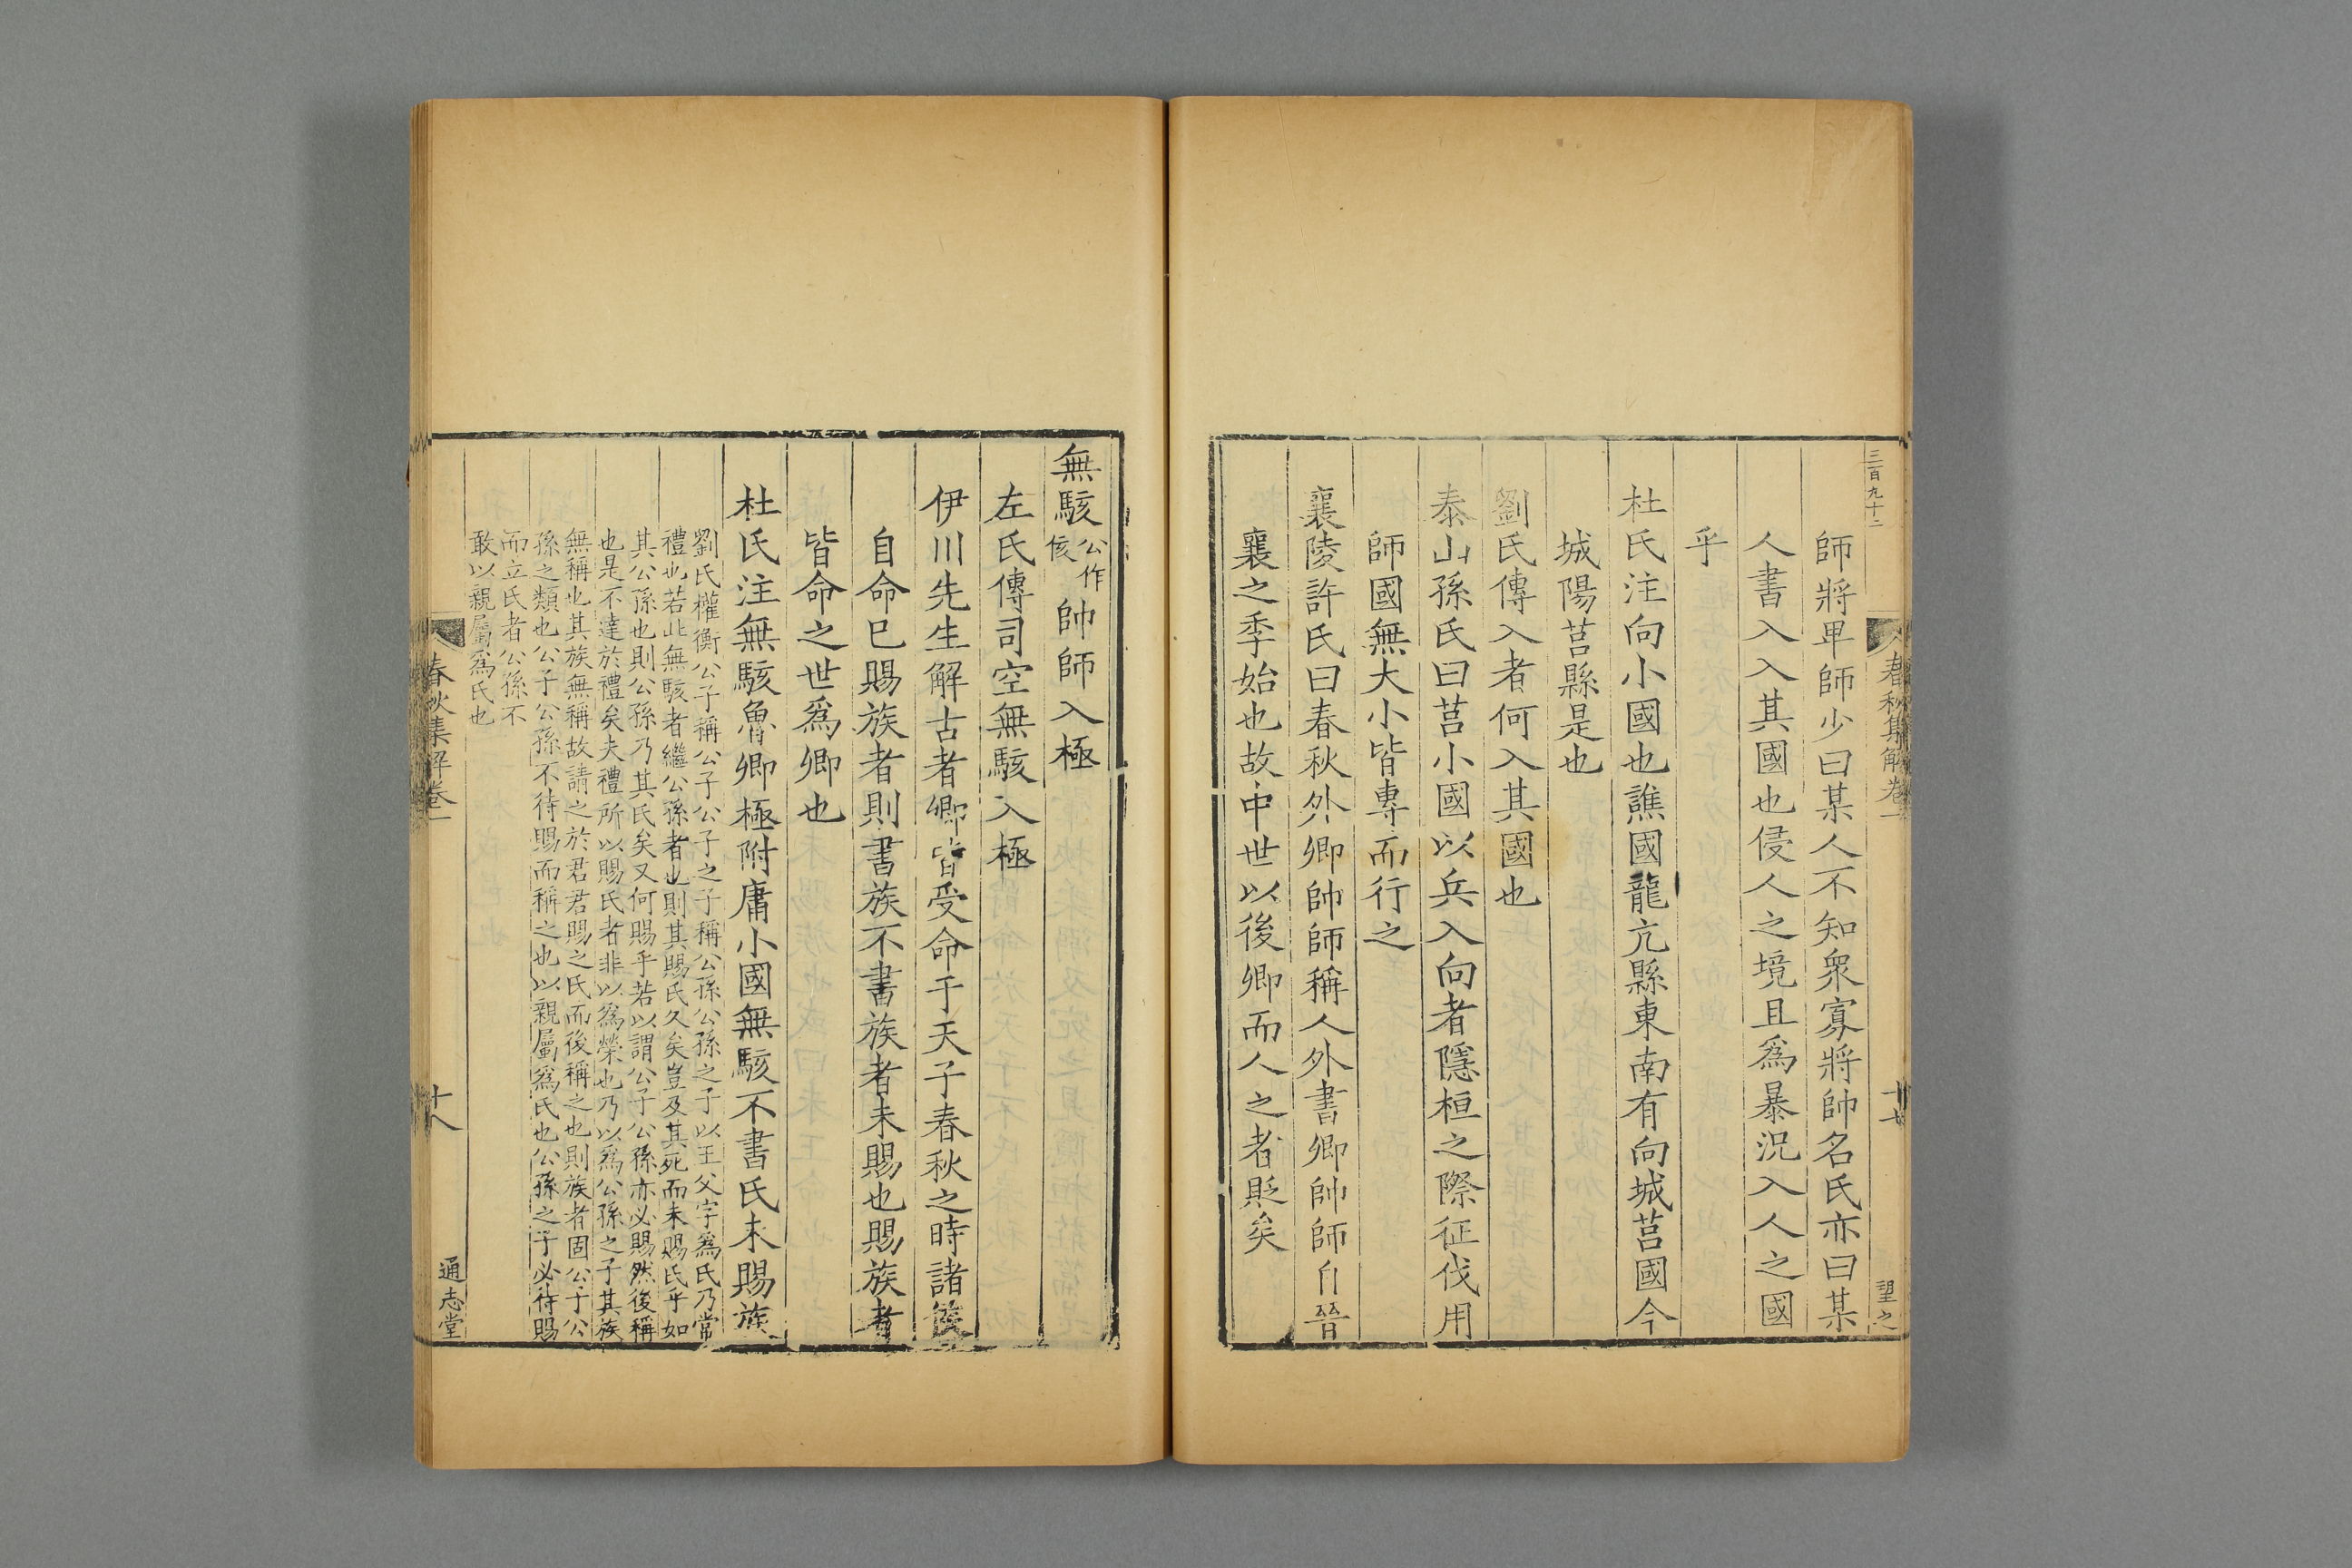 三百九十二
春秋集解卷一
十七
望之
師將卑師少曰某人不知衆寡將帥名氏亦曰某
人書入入其國也侵人之境且爲暴況入人之國
乎
杜氏注向小國也譙國龍亢縣東南有向城莒國今
城陽莒縣是也
劉氏傳入者何入其國也
泰山孫氏曰莒小國以兵入向者隱桓之際征伐用
師國無大小皆專而行之
襄陵許氏曰春秋外卿帥師稱人外書卿帥師自晉
襄之季始也故中世以後卿而人之者貶矣
無駭公作侅帥師入極
左氏傳司空無駭入極
伊川先生解古者卿皆受命于天子春秋之時諸侯
自命已賜族者則書族不書族者未賜也賜族者
皆命之世爲卿也
杜氏注無駭魯卿極附庸小國無駭不書氏未賜族
劉氏權衡公子稱公子公子之子稱公孫公孫之子以王父字爲氏乃常
禮也若此無駭者繼公孫者也則其賜氏久矣豈及其死而未賜氏乎如
其公孫也則公孫乃其氏矣又何賜乎若以謂公子公孫亦必賜然後稱
也是不達於禮矣夫禮所以賜氏者非以爲榮也乃以爲公孫之子其族
無稱也其族無稱故請之於君君賜之氏而後稱之也則族者固公子公
孫之類也公子公孫不待賜而稱之也以親屬爲氏也公孫之子必待賜
而立氏者公孫不
敢以親屬爲氏也
春秋集解卷一
十八
通志堂